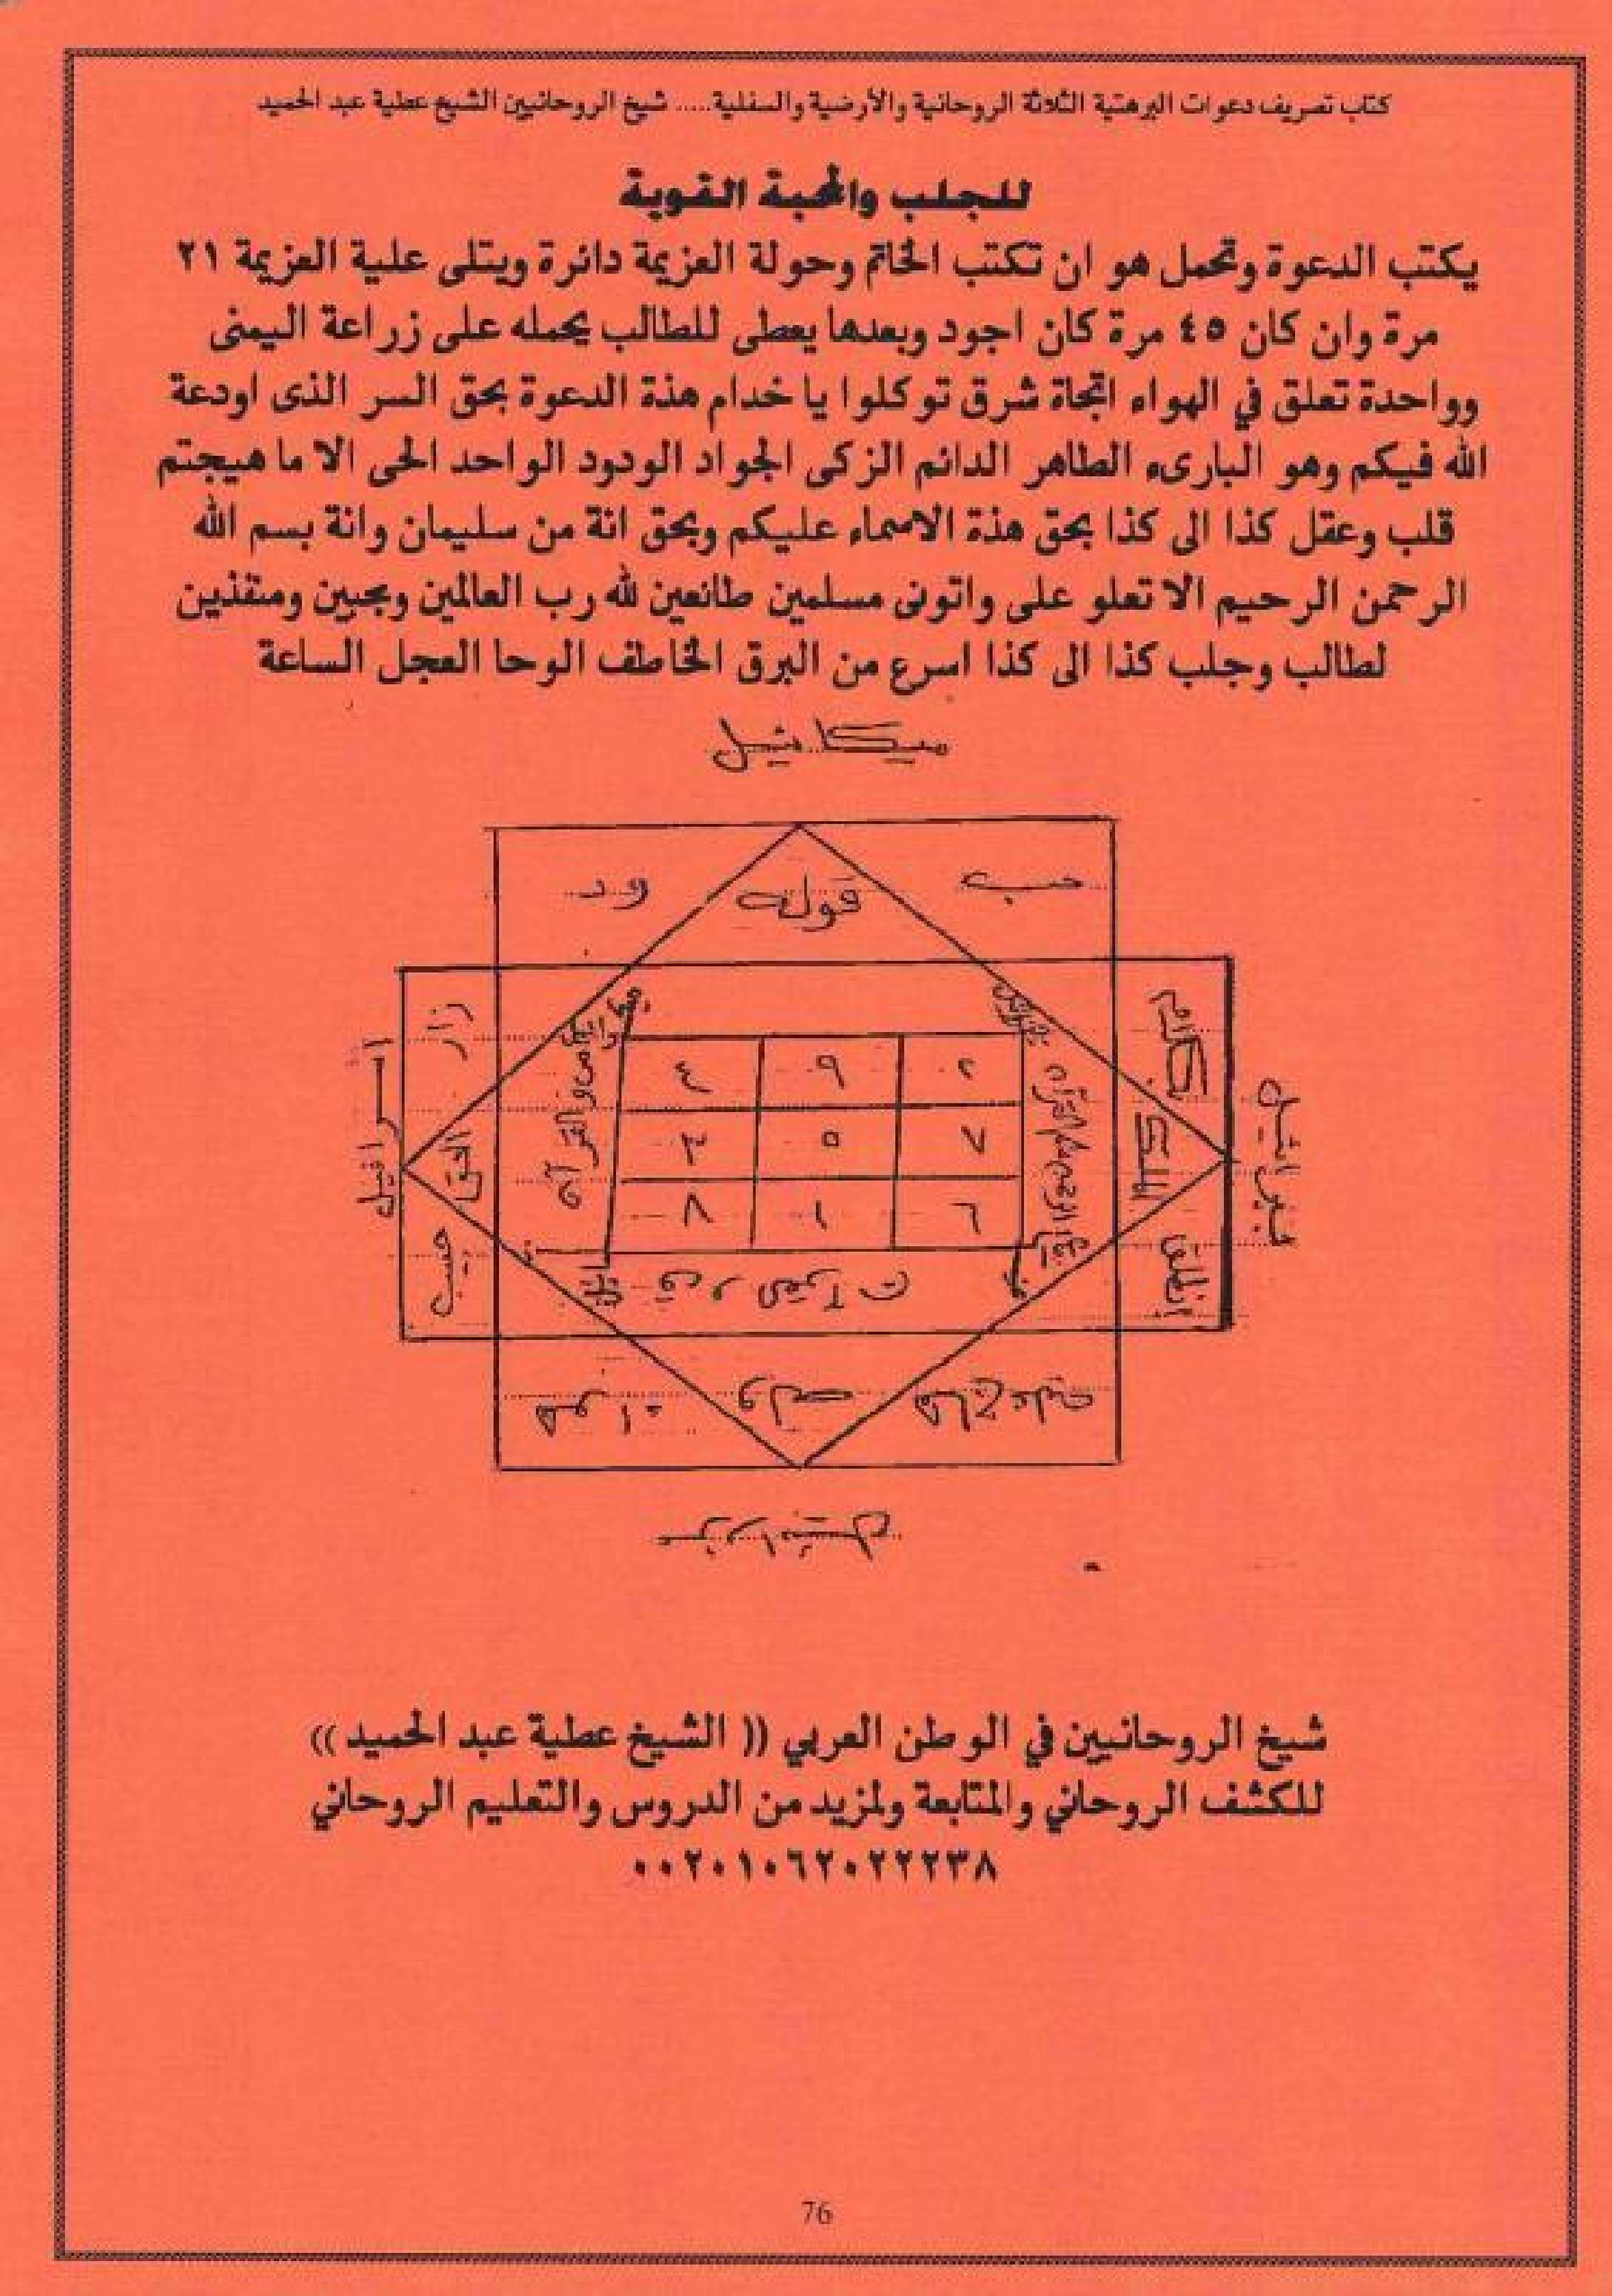 كتاب تصريف دعوات البرهتية الثلاثة الروحانية والأرضية والسفلية..... شيخ الروحانيين الشيخ عطية عبد الحميد
للجلب والمحبة القوية
يكتب الدعوة وتحمل هو ان تكتب الخاتم وحولة العزيمة دائرة ويتلى علية العزيمة ٢١
مرة وان كان ٤٥ مرة كان اجود وبعدها يعطى للطالب يحمله على زراعة اليمنى
وواحدة تعلق في الهواء اتجاة شرق توكلوا يا خدام هذة الدعوة بحق السر الذى اودعة
الله فيكم وهو البارىء الطاهر الدائم الزكى الجواد الودود الواحد الحى الا ما هيجتم
قلب وعقل كذا الى كذا بحق هذة الاسماء عليكم وبحق انة من سليمان وانة بسم الله
الرحمن الرحيم الا تعلو على واتونى مسلمين طائعين لله رب العالمين ومجبين ومنفذين
لطالب وجلب كذا الى كذا اسرع من البرق الخاطف الوحا العجل الساعة
ميكائيل
حب
قوله
ود
كلام
الملك
زار
الحق
حبيب
٢ ٩ ٣
٧ ٥ ٤
٦ ١ ٨
ص والقرآن
اسرافيل
شيخ الروحانيين في الوطن العربي (( الشيخ عطية عبد الحميد ))
للكشف الروحاني والمتابعة ولمزيد من الدروس والتعليم الروحاني
٠٠٢٠١٠٦٢٠٢٢٢٣٨
76